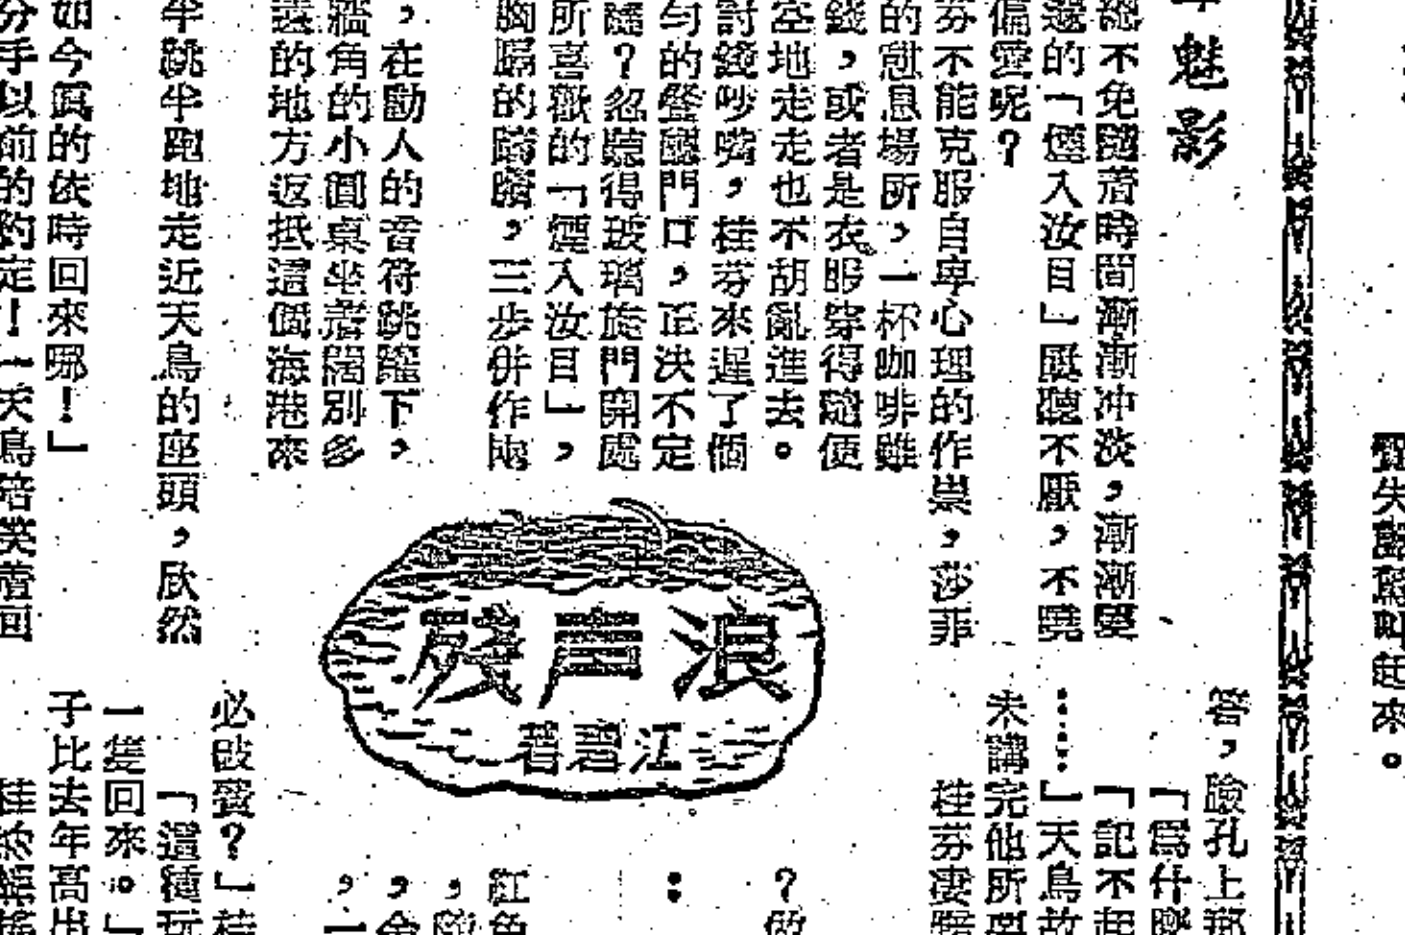 魅影
總不免隨着時間漸漸冲淡，漸漸變
的「煙入汝目」歷聽不厭，不曉
偏愛呢？
芬不能克服自卑心理的作祟，莎菲
的憩息場所，一杯咖啡雖
錢，或者是衣服穿得隨便
空地走走也不胡亂進去。
討錢吵嘴，桂芬來遲了個
勻的餐廳門口，正決不定
？忽聽得玻璃旋門開處
所喜歡的「煙入汝目」，
胸膈的，三步併作兩
，在動人的音符跳躍下，
牆角的小圓桌坐着闊別多
遠的地方返抵這個海港來
半跳半跑地走近天鳥的座頭，欣然
如今真的依時回來哪！」
分手以前的約定！一天鳥陪笑着回
浪声殘
江碧著
覺失聲驚叫起來。
答，臉孔上那
「爲什麼
「記不起
……」天鳥故
未講完他所要
桂芬凄
？做
：
紅色
必破費？」桂
「這種玩
一隻回來。」
子比去年高出